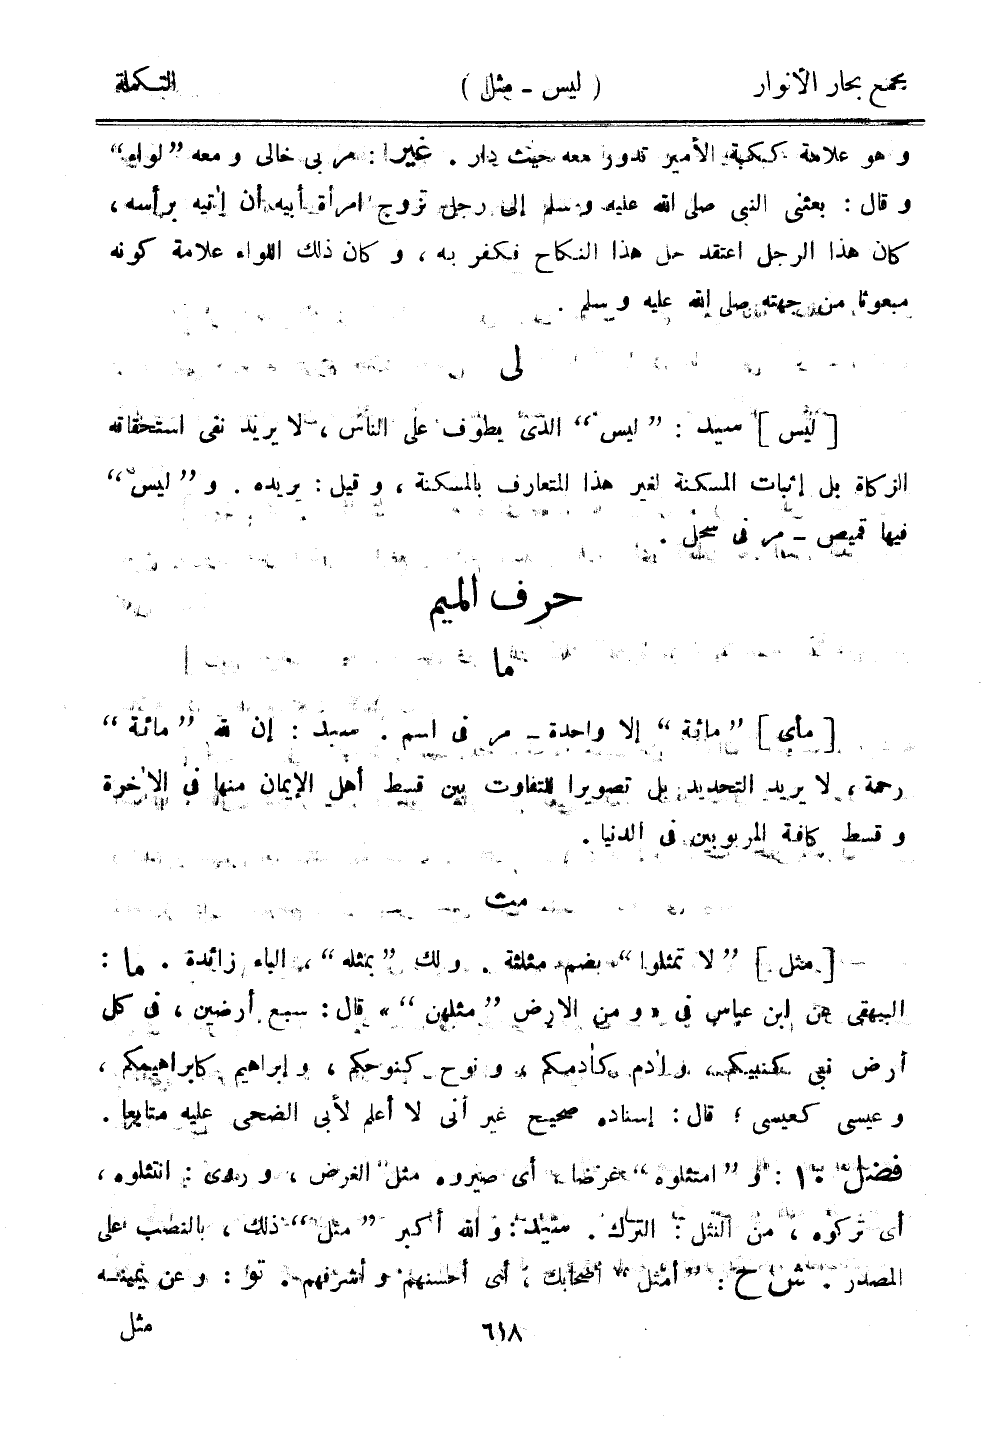 مجمع بحار الأنوار ( ليس - مثل ) التكملة
و هو علامة كبكبة الأمير تدور معه حيث دار . غيرا : مر بى خالى و معه ”لواء“
و قال : بعثنى النبى صلى الله عليه و سلم إلى رجل تزوج امرأة أبيه أن اٰتيه برأسه ،
كان هذا الرجل اعتقد حل هذا النكاح فكفر به ، و كان ذلك اللواء علامة كونه
مبعوثا من جهته صلى الله عليه و سلم .
لى
[ ليس ] سيد : ” ليس “ الذى يطوف على الناس ، لا يريد نفى استحقاقه
الزكاة بل إثبات المسكنة لغير هذا المتعارف بالمسكنة ، و قيل : يريده . و ” ليس “
فيها قميص - مر فى سحل .
حرف الميم
ما
[ مأى ] ” مائة “ إلا واحدة - مر فى اسم . سيد : إن لله ” مائة “
رحمة ، لا يريد التحديد بل تصويرا للتفاوت بين قسط أهل الإيمان منها فى الاٰخرة
و قسط كافة المربوبين فى الدنيا .
مث
[ مثل ] ” لا تمثلوا “ بضم مثلثة . و لك ” بمثله “ ، الباء زائدة . ما :
البيهقى عن ابن عباس فى « و من الارض ” مثلهن “ » قال : سبع أرضين ، فى كل
أرض نبى كنبيكم ، و اٰدم كاٰدمكم ، و نوح كنوحكم ، و إبراهيم كابراهيمكم ،
و عيسى كعيسى ؛ قال : إسناده صحيح غير أنى لا أعلم لأبى الضحى عليه متابعا .
فضل ١٠ : و ” امتثلوه “ غرضا ، أى صيروه مثل الغرض ، و روى : انتثلوه ،
أى تركوه ، من النثل : الترك . سيد : و الله أكبر ” مثل “ ذلك ، بالنصب على
المصدر . ش ح : ” أمثل “ أصحابك ، أى أحسنهم و أشرفهم . تو : و عن يمينه
٦١٨ مثل